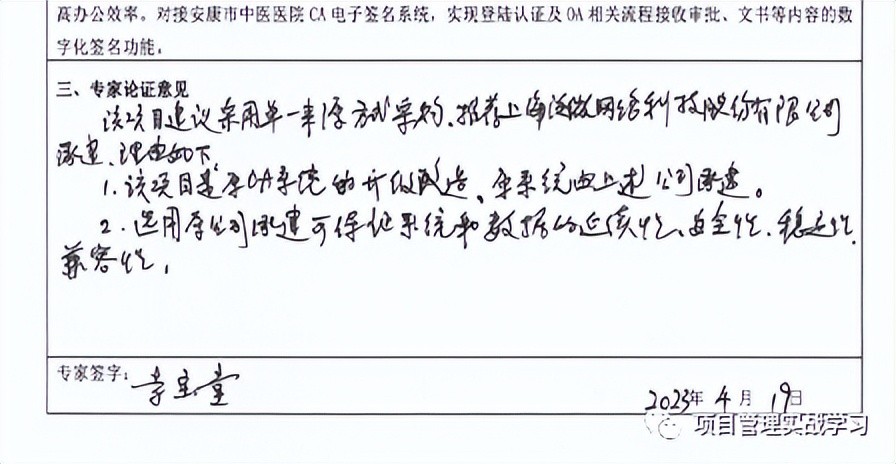 高办公效率。对接安康市中医医院 CA 电子签名系统，实现登陆认证及 OA 相关流程接收审批、文书等内容的数
字化签名功能。
三、专家论证意见
该项目建议采用单一来源方式采购、推荐上海泛微网络科技股份有限公司
承建、理由如下。
1.该项目是原OA系统的升级改造、原系统由上述公司承建。
2.选用原公司承建可保证系统和数据的延续性、安全性、稳定性、
兼容性,
专家签字: 李宝堂
2023年 4月 19日
项目管理实战学习